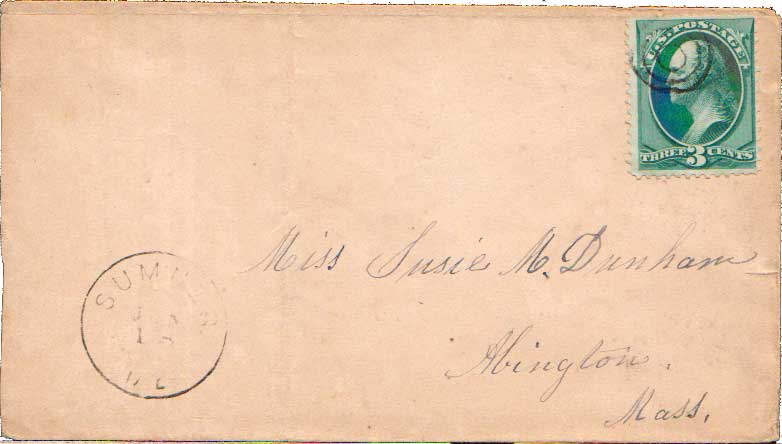 U.S. POSTAGE
THREE 3 CENTS
Miss Susie M. Dunham
Abington.
Mass.